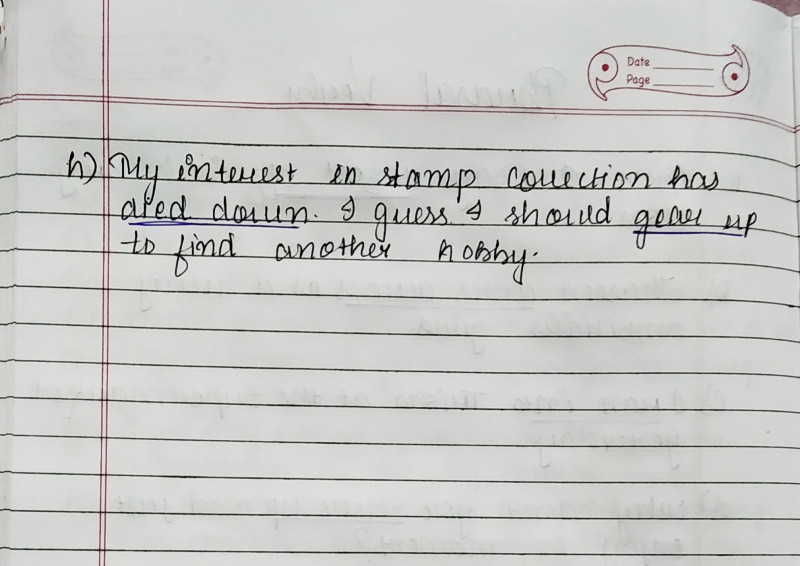 Date
Page
h) My interest in stamp collection has
died down. I guess I should gear up
to find another hobby.